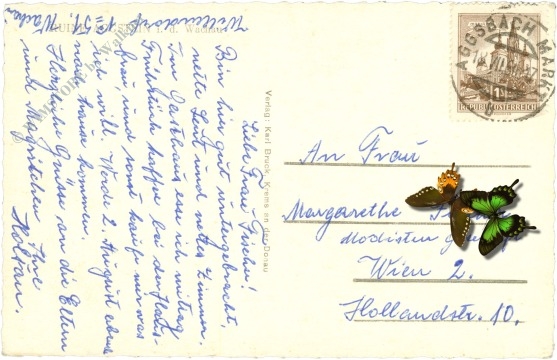 Willendorf
№ 51. Wachau
RUINE i. d. Wachau
Liebe Frau Fischer!
Bin hier gut untergebracht,
nette Leut und nettes Zimmer.
Im Gasthaus esse ich mittag
Frühstück Kaffee bei der Haus-
frau, und sonst kaufe nur was
ich will. Werde 2. August
nach kommen.
Herzliche Grüße an die Eltern
und Ihre
Verlag: Karl Bruck, Krems an der Donau
AGGSBACH MARKT
REPUBLIK ÖSTERREICH
An Frau
Margarethe
Modisten
Wien 2.
Hollandstr. 10.